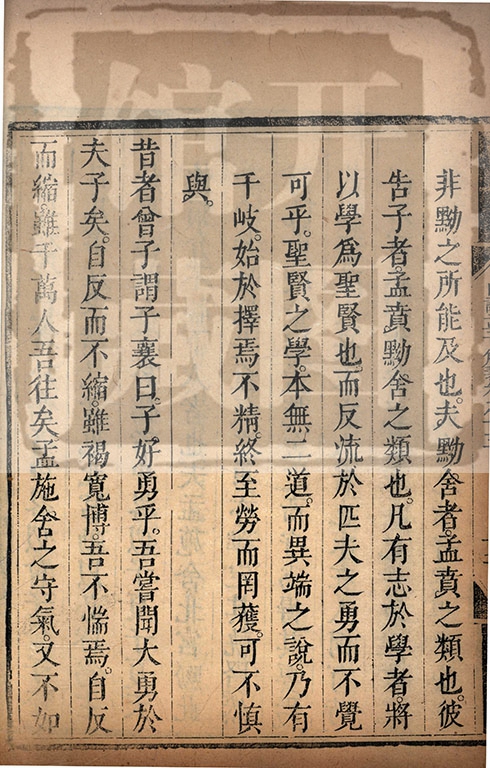 非黝之所能及也。夫黝舍者。孟賁之類也。彼
告子者。孟賁黝舍之類也。凡有志於學者。將
以學爲聖賢也。而反流於匹夫之勇而不覺
可乎。聖賢之學。本無二道。而異端之說。乃有
千岐。始於擇焉不精。終至勞而罔獲。可不慎
與。
昔者曾子謂子襄曰。子好勇乎。吾嘗聞大勇於
夫子矣。自反而不縮。雖褐寬博。吾不惴焉。自反
而縮。雖千萬人吾往矣。孟施舍之守氣。又不如